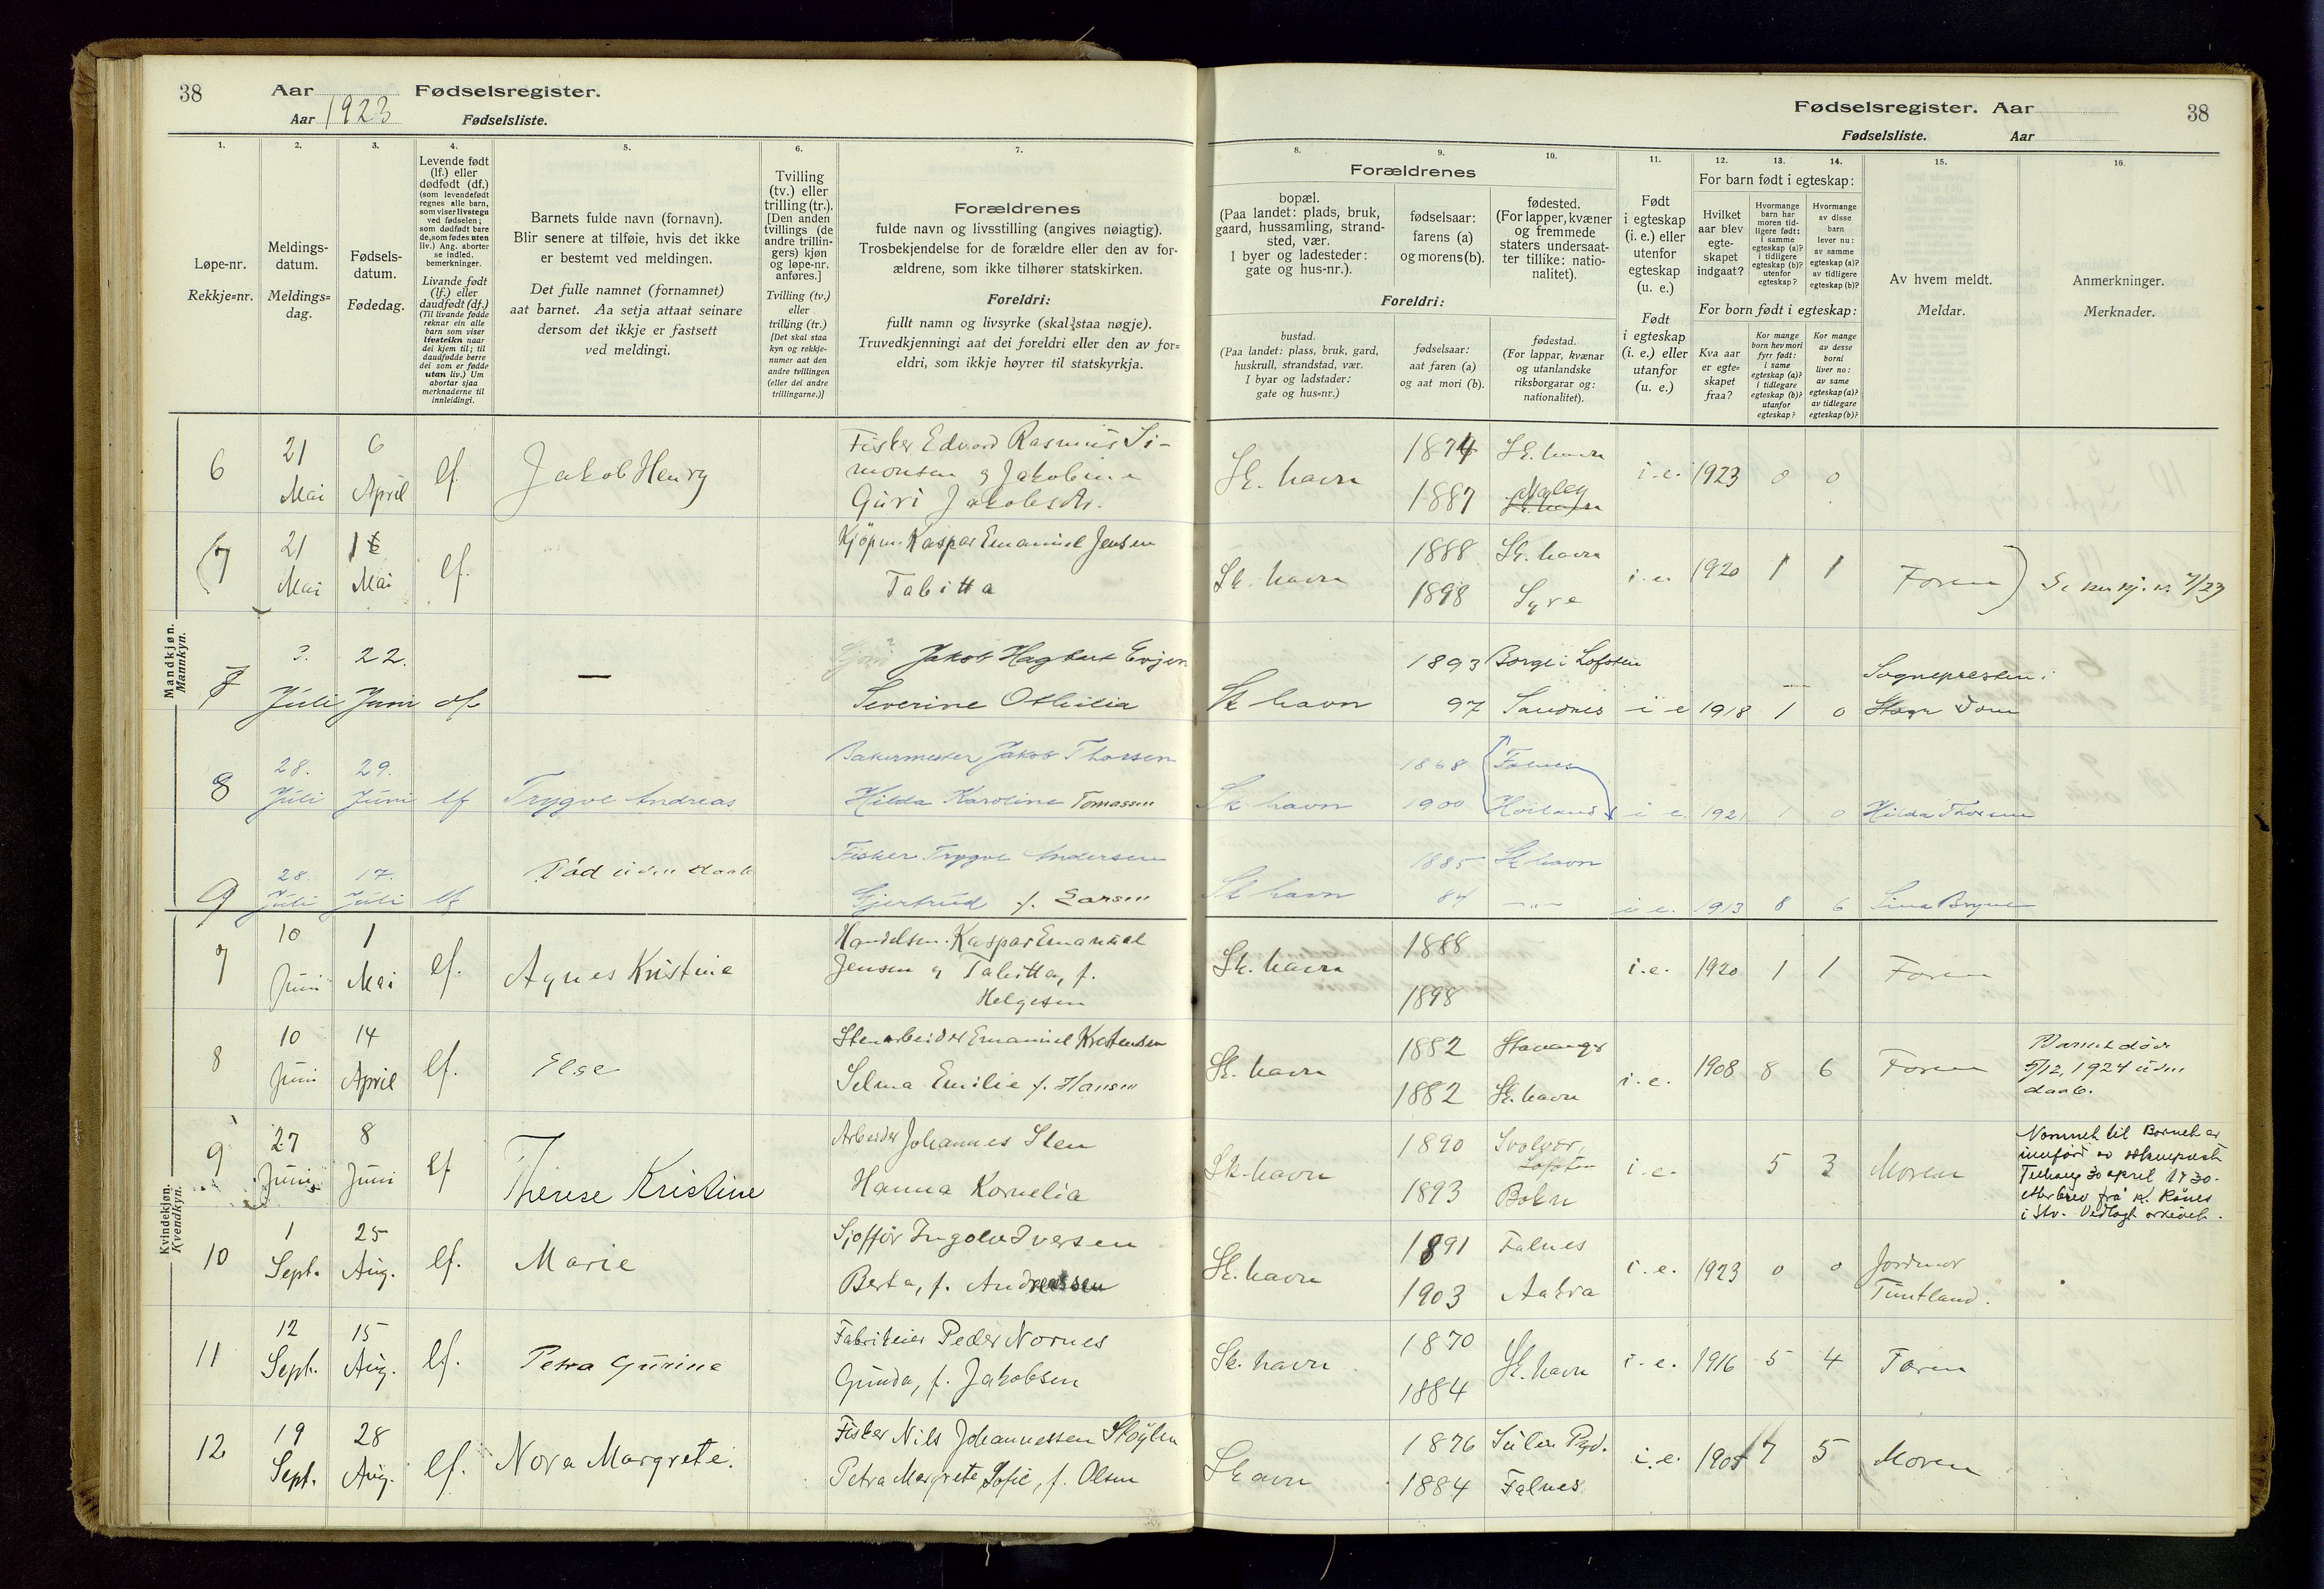 38 Aar Fødselsregister.
Aar 1923 Fødselsliste.
1. 2. 3. 4. 5. 6. 7.
Løpe-nr.
Rekkje=nr.
Meldings-
datum.
Meldings=
dag.
Fødsels-
datum.
Fødedag.
Levende født
(lf.) eller
dødfødt (df.)
(som levendefødt
regnes alle barn,
som viser livstegn
ved fødselen;
som dødfødt bare
de, som fødes uten
liv.) Ang. aborter
se indled.
bemerkninger.
Livande født
(lf.) eller
daudfødt (df.)
(Til livande fødde
reknar ein alle
barn som viser
livsteikn naar
dei kjem til; til
daudfødde berre
dei som er fødde
utan liv.) Um
abortar sjaa
merknaderne til
innleidingi.
Barnets fulde navn (fornavn).
Blir senere at tilføie, hvis det ikke
er bestemt ved meldingen.
Det fulle namnet (fornamnet)
aat barnet. Aa setja attaat seinare
dersom det ikkje er fastsett
ved meldingi.
Tvilling
(tv.) eller
trilling (tr.).
[Den anden
tvillings (de
andre trillin-
gers) kjøn
og løpe-nr.
anføres.]
Tvilling (tv.)
eller
trilling (tr.)
[Det skal staa
kyn og rekkje-
numer aat den
andre tvillingen
(eller dei andre
trillingarne.)]
Forældrenes
fulde navn og livsstilling (angives nøiagtig).
Trosbekjendelse for de forældre eller den av for-
ældrene, som ikke tilhører statskirken.
Foreldri:
fullt namn og livsyrke (skal staa nøgje).
Truvedkjenningi aat dei foreldri eller den av for=
eldri, som ikkje høyrer til statskyrkja.
Mandkjøn.
Mannkyn.
6 21 Mai 6 April lf. Jakob Henry
Fisker Edvard Rasmus Si-
monsen og Jakobine
Guri Jakobsdtr.
7 21 Mai Mai lf.
Kjøpm. Kaspar Emanuel Jensen
Tabitta
7 3. Juli 22. Juni df —
Jakob Hagbart Evjen
Severine Othilia
8 28. Juli 29. Juni lf Trygve Andreas
Bakermester Jakob Thorsen
Hilda Karoline Tomassen
9 28. Juli 17. Juli lf Død uden daab
Fisker Trygve Andersen
Gjertrud f. Larsen
Kvindekjøn.
Kvendkyn.
7 10 Juni 1 Mai lf. Agnes Kristine
Handelsm. Kaspar Emanuel
Jensen og Tabitta, f.
Helgesen
8 10 Juni 14 April lf. Else
Stenarbeider Emanuel Kristensen
Selma Emilie f. Hansen
9 27 Juni 8 Juni lf Therese Kristine
Arbeider Johannes Sten
Hanna Kornelia
10 1 Sept. 25 Aug. lf. Marie
Sjoffør Ingolv Iversen
Berta, f. Andreassen
11 12 Sept. 15 Aug. lf. Petra Gurine
Fabrikeier Peder Nornes
Gunda, f. Jakobsen
12 19 Sept. 28 Aug. lf. Nora Margrete.
Fisker Nils Johannessen Støylen
Petra Margrete Sofie, f. Olsen
Fødselsregister. Aar 38
Fødselsliste. Aar
8. 9. 10. 11. 12. 13. 14. 15. 16.
Forældrenes
bopæl.
(Paa landet: plads, bruk,
gaard, hussamling, strand-
sted, vær.
I byer og ladesteder:
gate og hus-nr.).
fødselsaar:
farens (a)
og morens (b).
fødested.
(For lapper, kvæner
og fremmede
staters undersaat-
ter tillike: natio-
nalitet).
Foreldri:
bustad.
(Paa landet: plass, bruk, gard,
huskrull, strandstad, vær.
I byar og ladstader:
gate og hus=nr.)
fødselsaar:
aat faren (a)
og aat mori (b).
fødestad.
(For lappar, kvænar
og utanlandske
riksborgarar og:
nationalitet).
Født
i egteskap
(i. e.) eller
utenfor
egteskap
(u. e.)
Født
i egteskap
(i. e.) eller
utanfor
(u. e.)
For barn født i egteskap:
Hvilket
aar blev
egte-
skapet
indgaat?
Hvormange
barn har
moren tid-
ligere født:
i samme
egteskap (a)?
i tidligere
egteskap (b)?
utenfor
egteskap?
Hvormange
av disse
barn
lever nu:
av samme
egteskap (a)?
av tidligere
egteskap (b)?
For born født i egteskap:
Kva aar
er egte=
skapet
fraa?
Kor mange
born hev mori
fyrr født:
i same
egteskap (a)?
i tidlegare
egteskap (b)?
utanfor
egteskap?
Kor mange
av desse
borni
liver no:
av same
egteskap (a)?
av tidlegare
egteskap (b)?
Av hvem meldt.
Meldar.
Anmerkninger.
Merknader.
Sk. havn 1874 Sk. havn i. e. 1923 0 0
1887
Sk. havn 1888 Sk. havn i. e. 1920 1 1 Faren
1898 Syre
Sk havn 1893 Borge i Lofoten
97 Sandnes i e 1918 1 0 Sognepresten i
Sk havn 1868 Falnes
1900 i e. 1921 1 0 Hilda Thorsen
Sk havn 1885 Sk havn
84 — " — i e. 1913 8 6 Sina Bryne
Sk. havn 1888 i. e. 1920 1 1 Faren
1898
Sk. havn 1882 Stavanger i. e. 1908 8 6 Faren
1882 Sk. havn
Barnet døde
5/12, 1924 uden
daab.
Sk. havn 1890 Svolvær, Lofoten i. e. 5 3 Moren
1893 Bokn
Navnet til Barnet er
innført av
30 april 1930.
etter brev frå K.
i Stv. Vedlagt arkivet.
Sk. havn 1891 Falnes i. e. 1923 0 0 Jordmor
1903 Aakra Tuntland.
Sk. havn 1870 Sk. havn i. e. 1916 5 4 Faren
1884
Sk avn 1876 Sulen Pgd. i. e. 1905 7 5 Moren
1884 Falnes